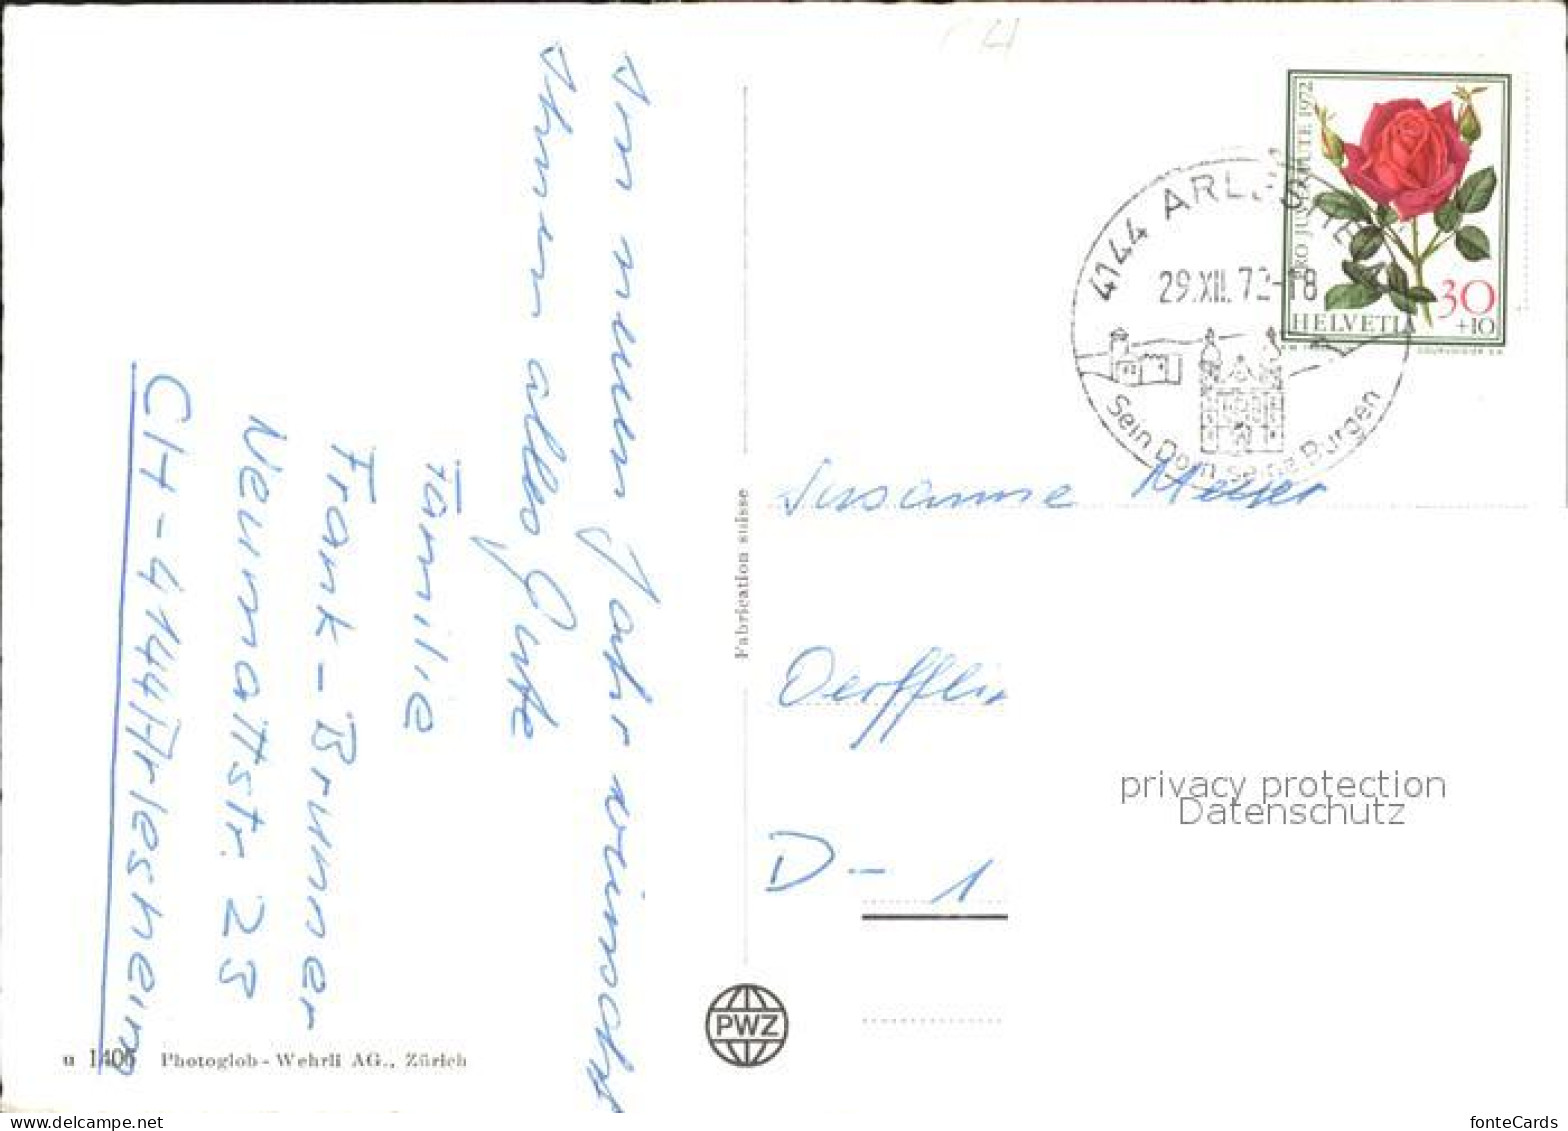 Im neuen Jahr wünscht
Ihnen alles Gute
Familie
Frank-Brunner
Neumattstr. 23
CH-4144 Arlesheim
u 1406 Photoglob-Wehrli AG., Zürich
Fabrication suisse
PWZ
PRO JUVENTUTE 1972
30
+10
HELVETIA
COURVOISIER S.A.
4144 ARLESHEIM
29.XII.72-18
Sein Dom seine Burgen
Susanne Meyer
Oerfflin
D-1
privacy protection
Datenschutz
fonteCards